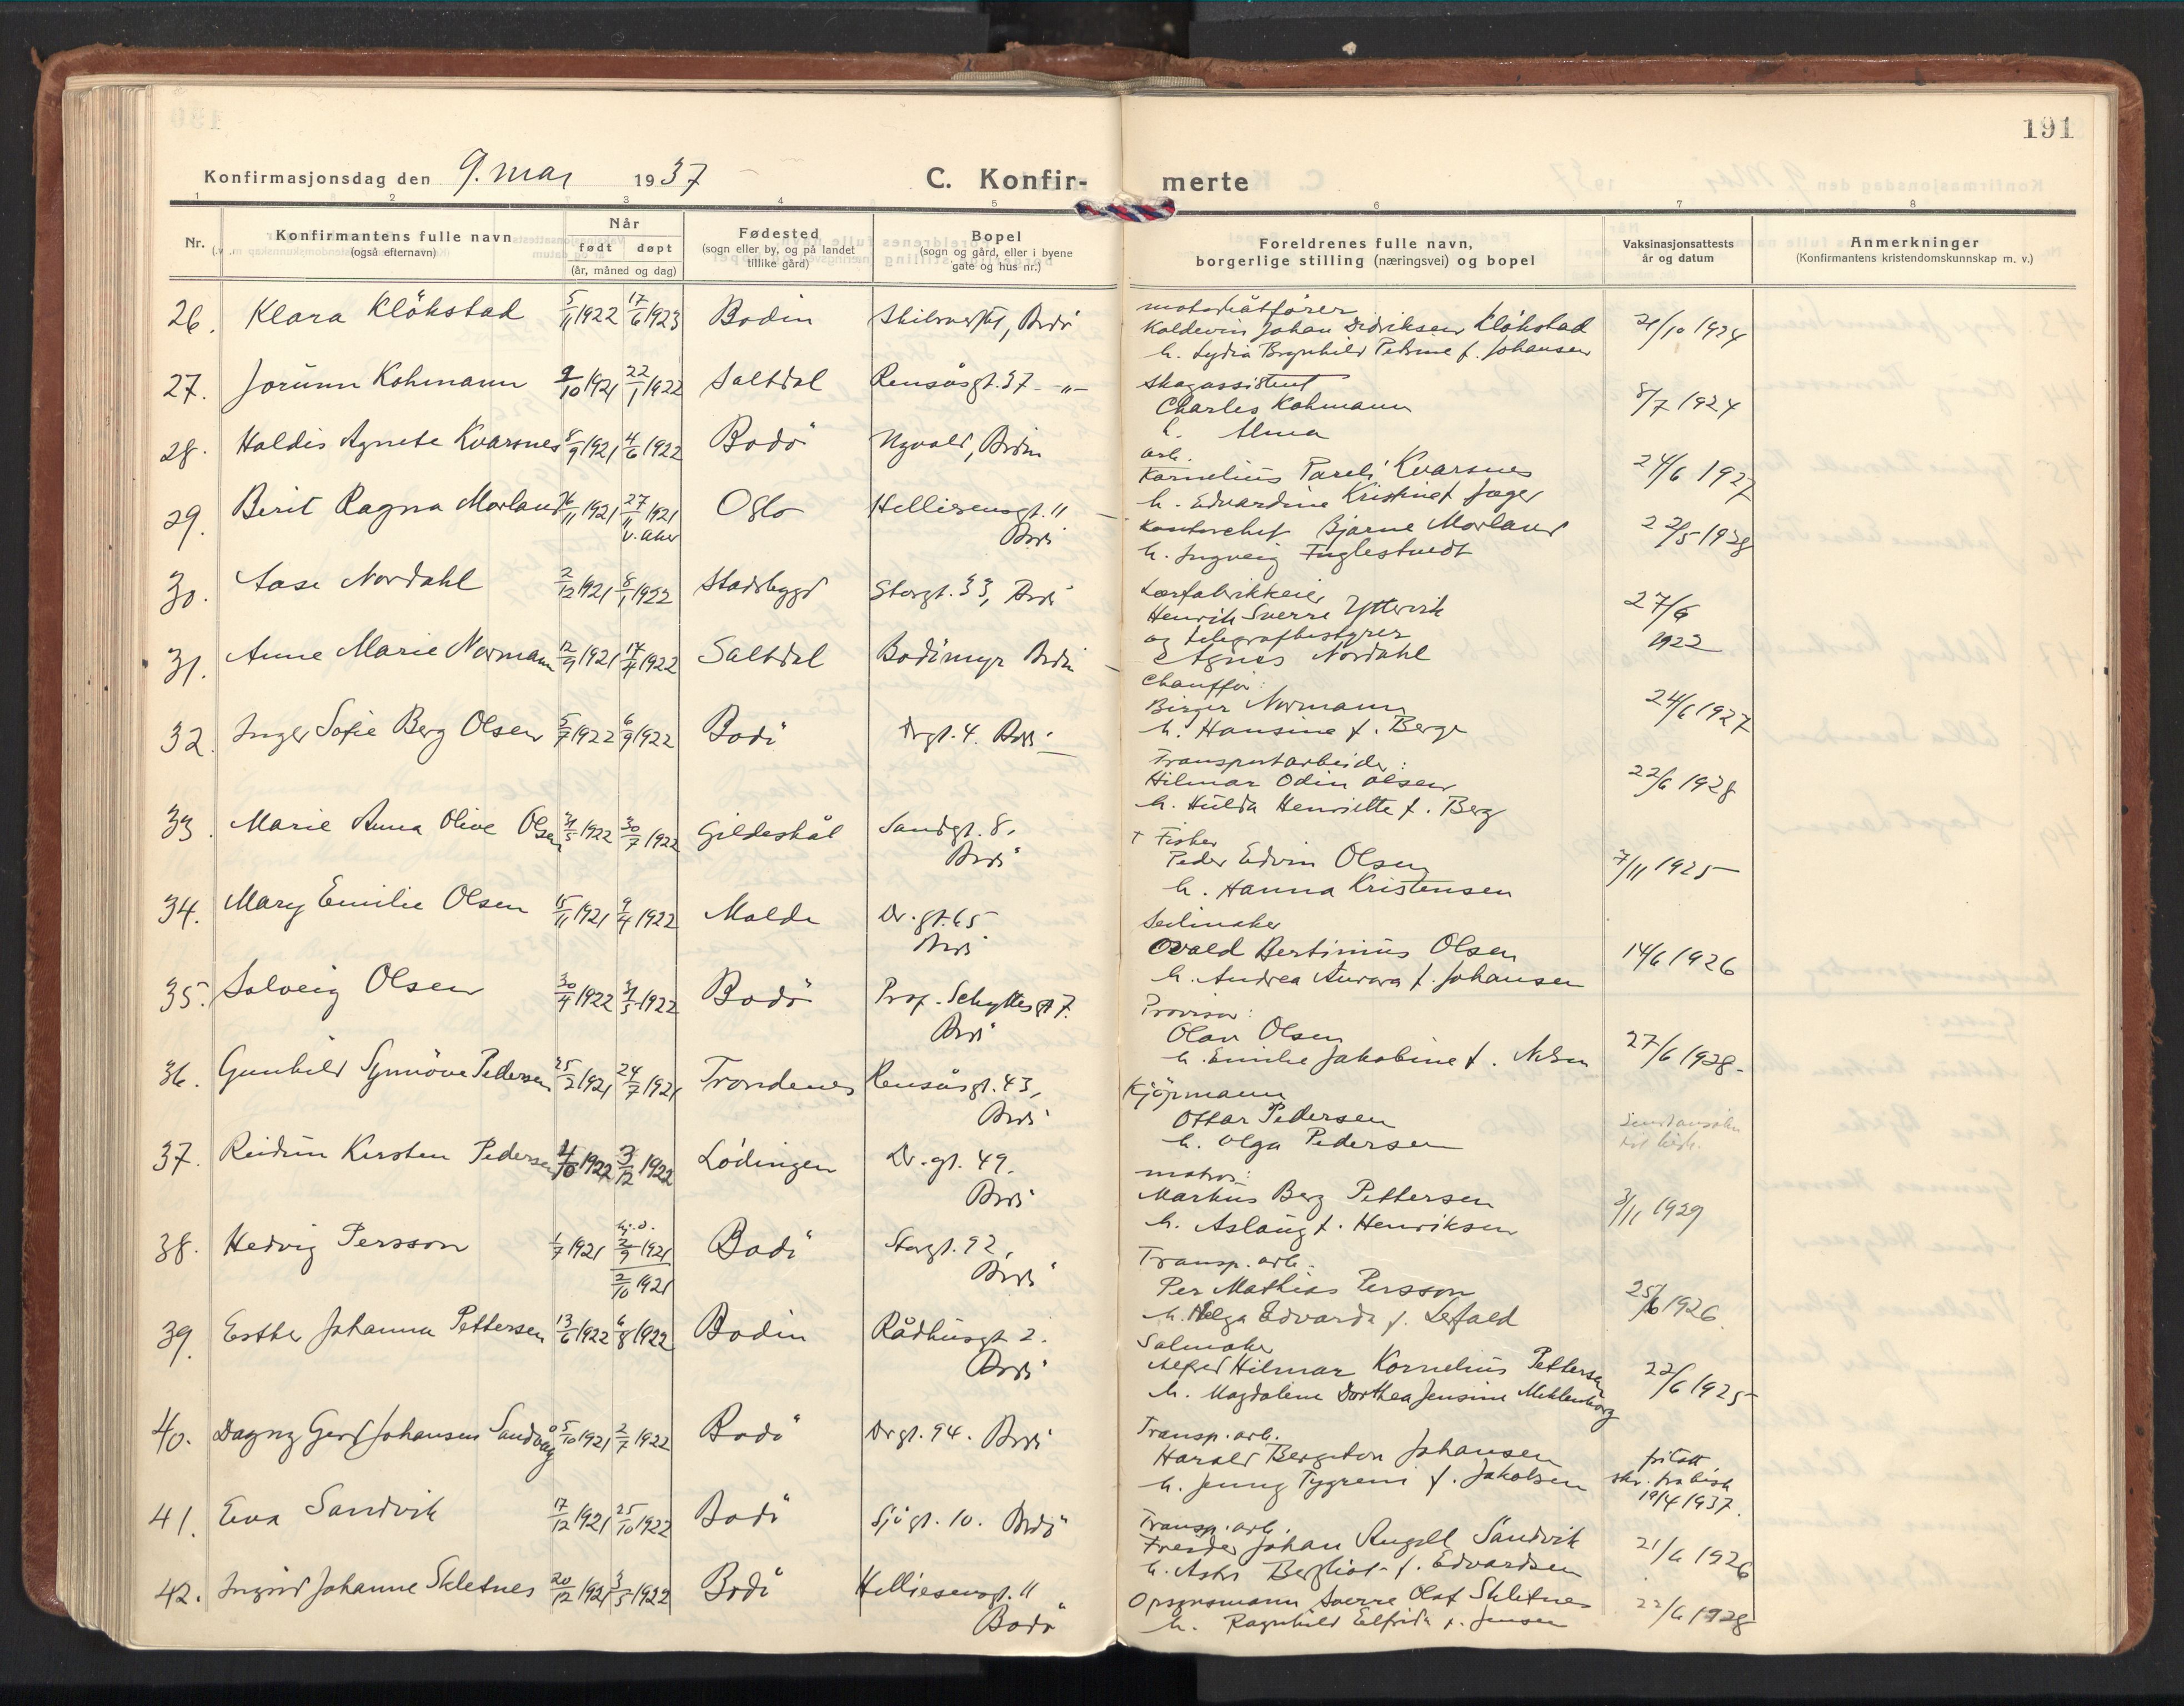 191
Konfirmasjonsdag den 9. mai 1937
C. Konfir- merte
1 2 3 4 5 6 7 8
Nr. Konfirmantens fulle navn (også efternavn) Når født døpt (år, måned og dag) Fødested (sogn eller by, og på landet tillike gård) Bopel (sogn og gård, eller i byene gate og hus nr.) Foreldrenes fulle navn, borgerlige stilling (næringsvei) og bopel Vaksinasjonsattests år og datum Anmerkninger (Konfirmantens kristendomskunnskap m. v.)
26. Klara Klökstad 5/11 1922 17/6 1923 Bodin Bodö
motorbåtförer
Koldevin Johan Didriksen Klökstad 21/10 1924
h. Lydia Brynhild Petrine f. Johansen
27. Jorunn Kohmann 9/10 1921 22/1 1922 Saltdal Rensåsgt. 37 -"-
skogassistent
Charles Kohmann 8/7 1924
h. Alma
28. Haldis Agnete Kvarsnes 8/9 1921 4/6 1922 Bodö Nyvold, Bodin
arb.
Kornelius Pareli Kvarsnes 24/6 1927
h. Edvardine Kristine f. Jæger
29. Berit Ragna Morland 16/11 1921 27/11 1921 Oslo Helliesensgt. 11
v. Aker Bodö
Kontorchef Bjarne Morland 22/5 1928
h. Ingveig Fuglestvedt
30. Aase Nordahl 2/12 1921 8/1 1922 Stadsbygd Storgt. 33, Bodö
Lærfabrikkeier
Henrik Sverre Yttervik 27/6
og telegrafbestyrer 1922
Agnes Nordahl
31. Anne Marie Normann 12/9 1921 17/4 1922 Saltdal Bodömyr Bodin
Chaufför:
Birger Normann 24/6 1927
h. Hansine f. Berge
32. Inger Sofie Berg Olsen 5/7 1922 6/9 1922 Bodö Drgt. 4. Bodö
Transportarbeider:
Hilmar Odin Olsen 22/6 1928
h. Hulda Henriette f. Berg
33. Marie Anna Olive Olsen 31/5 1922 30/7 1922 Gildeskål Sandgt. 8.
Bodö
† Fisker
Peder Edvin Olsen 7/11 1925
h. Hanna Kristensen
34. Mary Emilie Olsen 15/11 1921 9/4 1922 Molde Dr. gt. 65
Bodö
Seilmaker
Ovald Bertinius Olsen 14/6 1926
h. Andrea Aurora f. Johansen
35. Solveig Olsen 30/4 1922 31/5 1922 Bodö Prof. Schyttesgt 7.
Bodö
Provisor:
Olav Olsen 27/6 1928.
h. Emilie Jakobine f. Nilsen
36. Gunhild Synnöve Pedersen 25/2 1921 24/7 1921 Trondenes Rensåsgt. 43,
Bodö
Kjöpmann
Ottar Pedersen
h. Olga Pedersen
37. Reidun Kirsten Pedersen 4/10 1922 3/12 1922 Lödingen Dr. gt. 49.
Bodö
matros:
Markus Berg Pettersen 3/11 1929
h. Aslaug f. Henriksen
38. Hedvig Persson 1/7 1921 hj.d. 2/9 1921 Bodö Storgt. 92,
2/10 1921 Bodö
Transp. arb.
Per Mathias Persson 25/6 1926.
h. Helga Edvarda f. Lefald
39. Esther Johanna Pettersen 13/6 1922 6/8 1922 Bodin Rådhusgt 2.
Bodö
Salmaker
Alfred Hilmar Kornelius Pettersen 22/6 1925
h. Magdalene Dorthea Jensine Meklenborg
40. Dagny Gerd Johansen Sandvåg 5/10 1921 2/7 1922 Bodö Drgt. 94. Bodö
Transp. arb.
Harald Bergiton Johansen fritatt
h. Jenny f. Jakobsen skr. fra bisk
19/4 1937.
41. Eva Sandvik 17/12 1921 25/10 1922 Bodö Sjögt. 10. Bodö
Transp. arb.
Johan Angell Sandvik 21/6 1926
h. Bergliot f. Edvardsen
42. Ingrid Johanne Skletnes 20/12 1921 3/5 1922 Bodö Helliesensgt. 11
Bodö
Opsynsmann Sverre Olaf Skletnes 22/6 1928
h. Ragnhild Elfrida f. Jensen